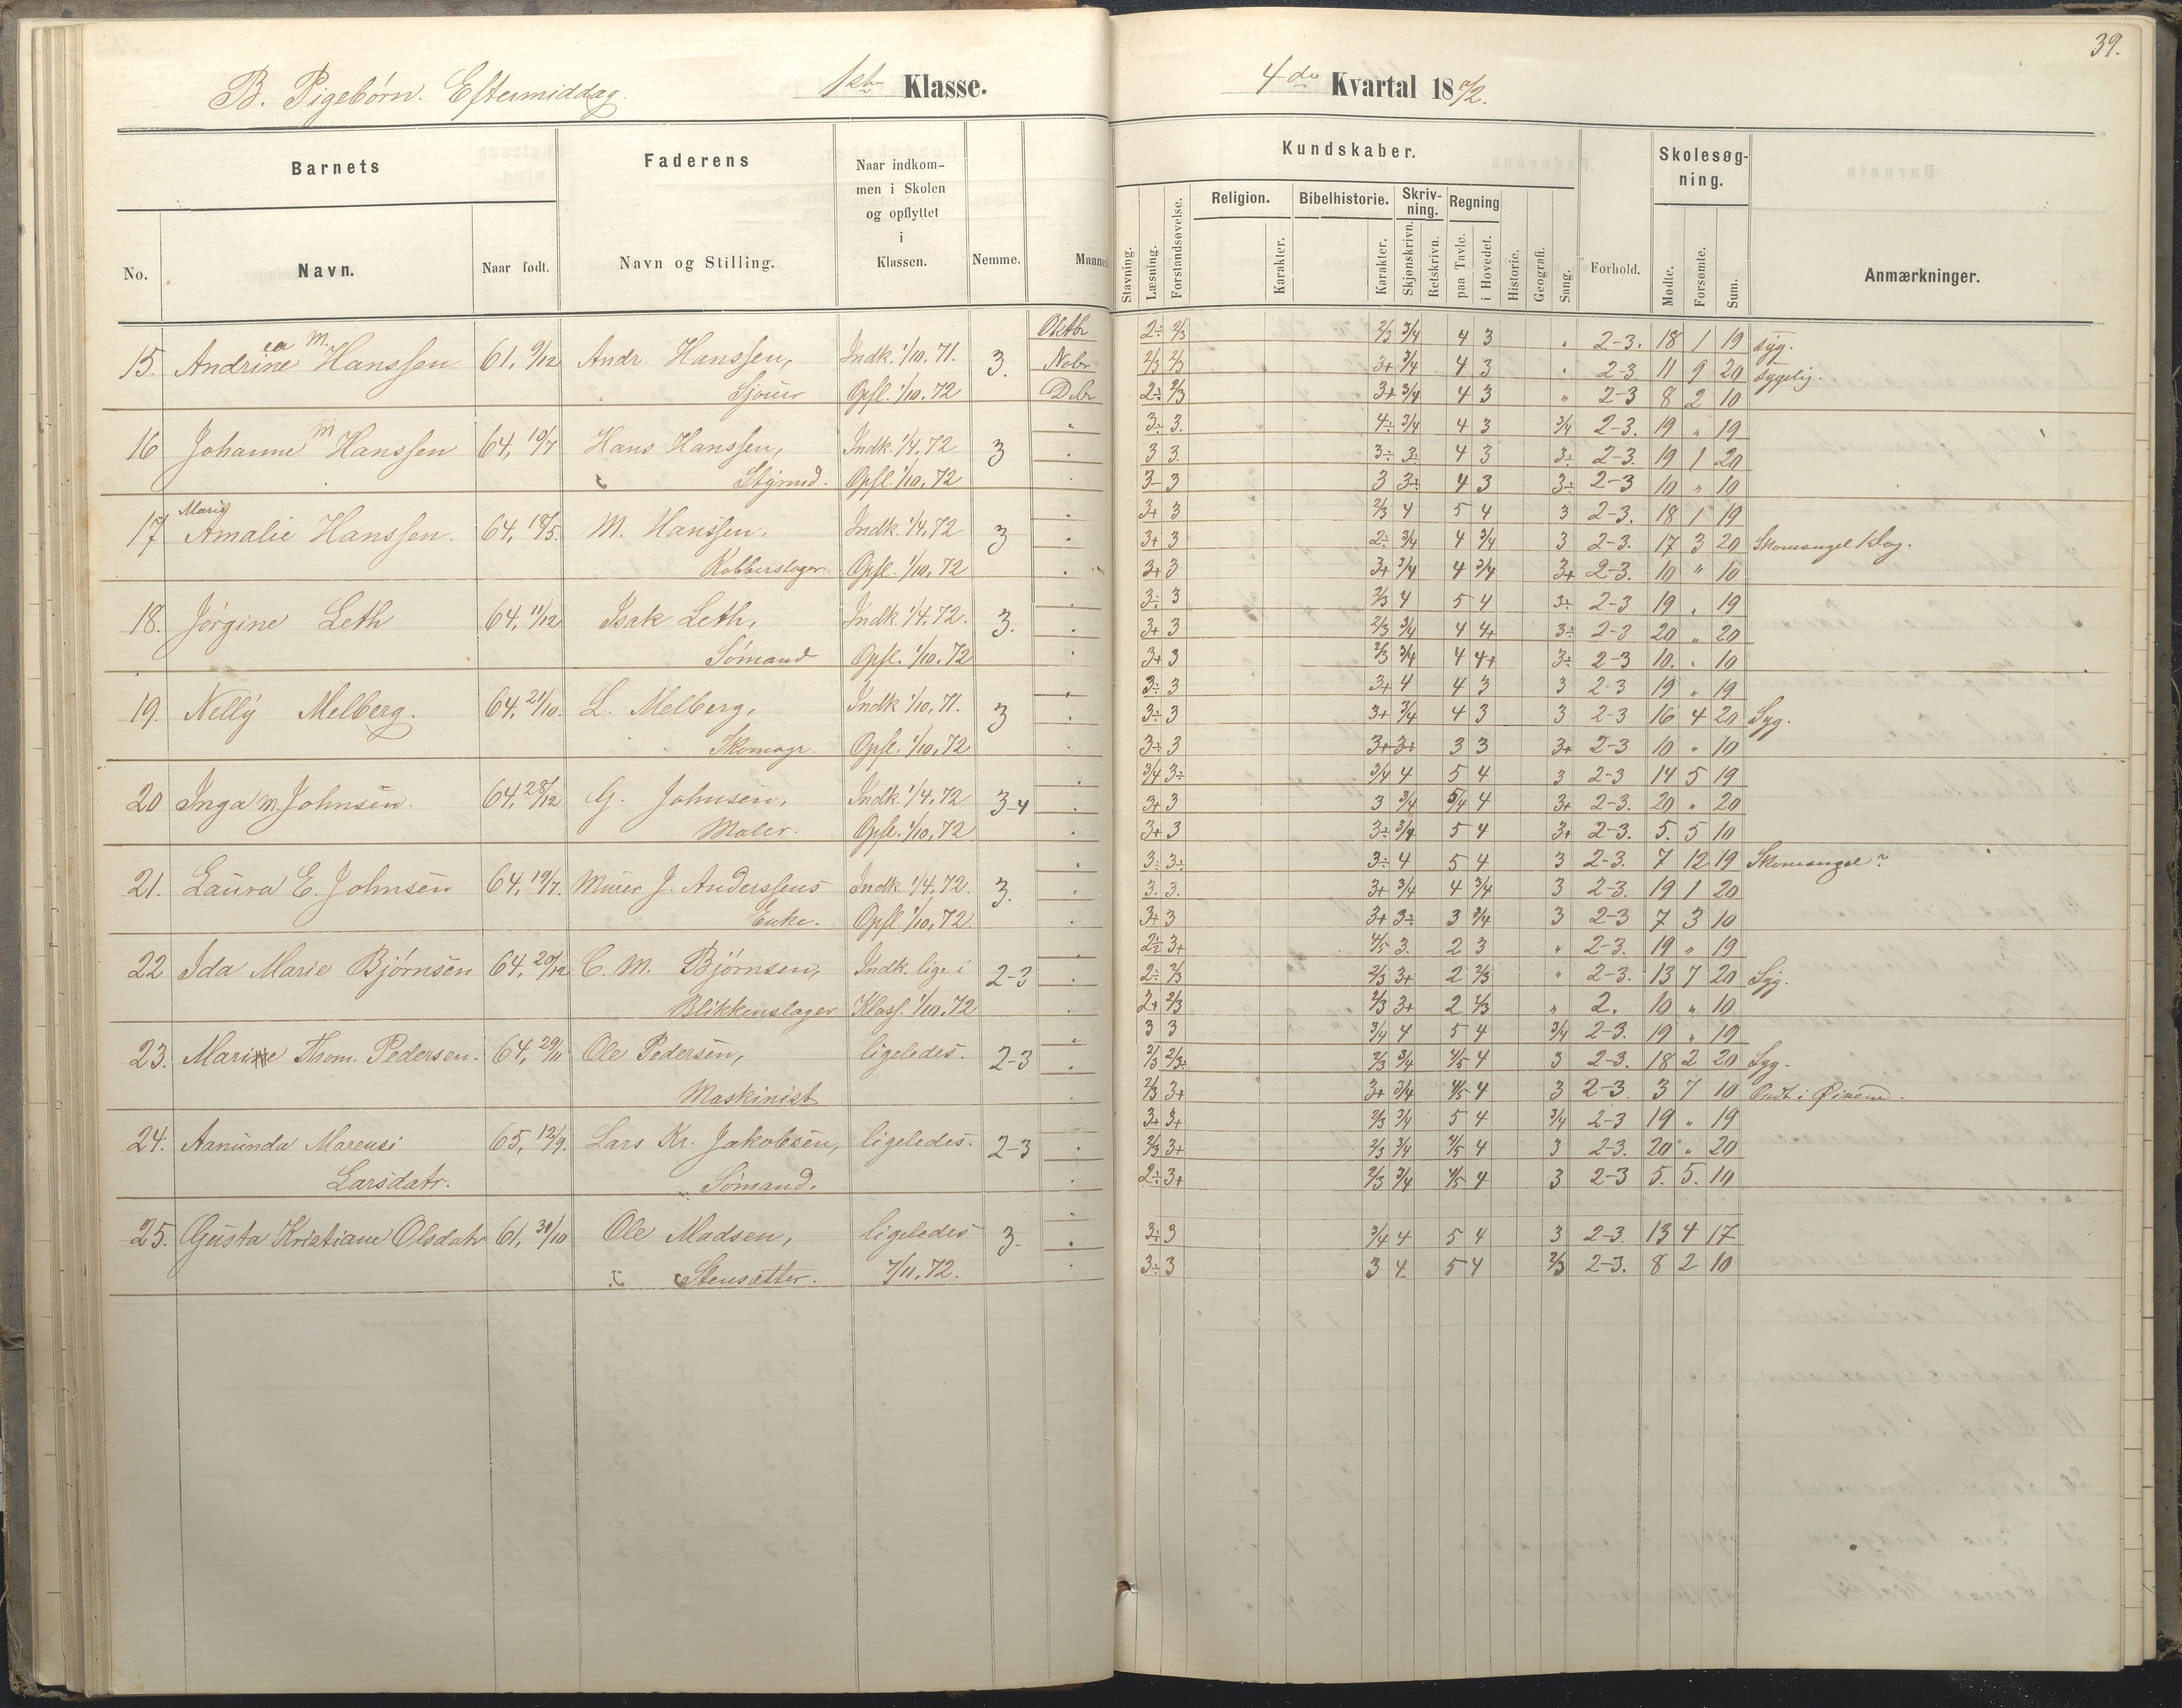 39.
B. Pigebörn. Eftermiddag. 1ste Klasse. 4de Kvartal 1872.
Barnets Faderens Naar indkommen i Skolen og opflyttet i Klassen. Nemme. Maaned
No. Navn. Naar født. Navn og Stilling.
Kundskaber. Skolesøgning.
Stavning. Læsning. Forstandsøvelse. Religion. Karakter. Bibelhistorie. Karakter. Skrivning. Skjønskrivn. Retskrivn. Regning paa Tavle. i Hovedet. Historie. Geografi. Sang. Forhold. Mødte. Forsømte. Sum. Anmærkninger.
Oktbr 2÷ 2/3 2/3 3/4 4 3 " 2-3. 18 1 19 syg.
15. Andrine ea M. Hanssen 61, 9/12 Andr. Hanssen, Indk. 1/10. 71. 3. Nobr 2/3 2/3 3+ 3/4 4 3 " 2-3 11 9 20 sygelig.
Sjouer Opfl. 1/10. 72 Debr 2÷ 2/3 3+ 3/4 4 3 " 2-3 8 2 10
" 3÷ 3. 4÷ 3/4 4 3 3/4 2-3. 19 " 19
16 Johanne M Hanssen 64, 10/7 Hans Hanssen, Indk. 1/4. 72 3 " 3 3. 3÷ 3. 4 3 3÷ 2-3. 19 1 20
Styrmd. Opfl. 1/10. 72 " 3- 3 3 3÷ 4 3 3÷ 2-3 10 " 10
Marie " 3+ 3 2/3 4 5 4 3 2-3. 18 1 19
17 Amalie Hanssen. 64, 18/5. M. Hanssen, Indk. 1/4. 72 3 " 3+ 3 2÷ 3/4 4 3/4 3 2-3. 17 3 20 Skomangel
Kobberslager Opfl. 1/10. 72 " 3+ 3 3+ 3/4 4 3/4 3+ 2-3. 10 " 10
" 3÷ 3 2/3 4 5 4 3÷ 2-3 19 " 19
18. Jörgine Leth 64, 11/12 Isak Leth, Indk. 1/4. 72. 3. " 3+ 3 2/3 3/4 4 4+ 3÷ 2-3 20 " 20
Sömand Opfl. 1/10. 72 " 3+ 3 2/3 3/4 4 4+ 3÷ 2-3 10. " 10
" 3÷ 3 3+ 4 4 3 3 2-3 19 " 19
19. Nelly Melberg. 64, 21/10. L. Melberg, Indk 1/10, 71. 3 " 3÷ 3 3+ 3/4 4 3 3 2-3 16 4 20 Syg.
Skomagr. Opfl. 1/10, 72 " 3÷ 3 3+ 3+ 3 3 3+ 2-3 10 " 10
" 3/4 3÷ 3/4 4 5 4 3 2-3 14 5 19
20 Inga M. Johnsen. 64, 28/12 G. Johnsen, Indk. 1/4, 72 3-4 " 3+ 3 3 3/4 5/4 4 3+ 2-3. 20 " 20
Maler. Opfl. 1/10, 72 " 3+ 3 3÷ 3/4 5 4 3+ 2-3. 5. 5 10
" 3÷ 3÷ 3÷ 4 5 4 3 2-3. 7 12 19 Skomangel?
21. Laura E. Johnsen 64, 19/7. Murer J. Anderssens Indk. 1/4, 72. 3. " 3. 3. 3+ 3/4 4 3/4 3 2-3. 19 1 20
Enke. Opfl. 1/10, 72. " 3+ 3 3+ 3÷ 3 3/4 3 2-3 7 3 10
" 2½ 3+ 4/5 3. 2 3 " 2-3. 19 " 19
22 Ida Marie Bjørnsen 64, 20/12 C. M. Bjørnsen, Indk. lige i 2-3 " 2÷ 2/3 2/3 3+ 2 2/3 " 2-3. 13 7 20 Syg.
Blikkenslager Klass. 1/10. 72 " 2+ 2/3 2/3 3+ 2 2/3 " 2. 10 " 10
" 3 3 3/4 4 5 4 3/4 2-3. 19 " 19
23. Marie Thom. Pedersen. 64, 29/11 Ole Pedersen, ligeledes. 2-3 " 2/3 2/3÷ 2/3 3/4 4/5 4 3 2-3. 18 2 20 Syg.
Maskinist " 2/3 3+ 3+ 3/4 4/5 4 3 2-3. 3 7 10 Ondt i Øinene.
3+ 3+ 2/3 3/4 5 4 3/4 2-3 19 " 19
24. Aanunda Marensi 65, 12/9. Lars Kr. Jakobsen, ligeledes. 2-3 " 2/3 3+ 2/3 3/4 4/5 4 3 2-3. 20 " 20
Larsdatr. Sömand. " 2÷ 3+ 2/3 3/4 4/5 4 3 2-3 5. 5. 10
25. Gusta Kristiane Olsdatr 61, 30/10 Ole Madsen, ligeledes 3. " 3÷ 3 3/4 4 5 4 3 2-3. 13 4 17
Stensætter. 7/11. 72. " 3÷ 3 3 4 5 4 2/3 2-3. 8 2 10